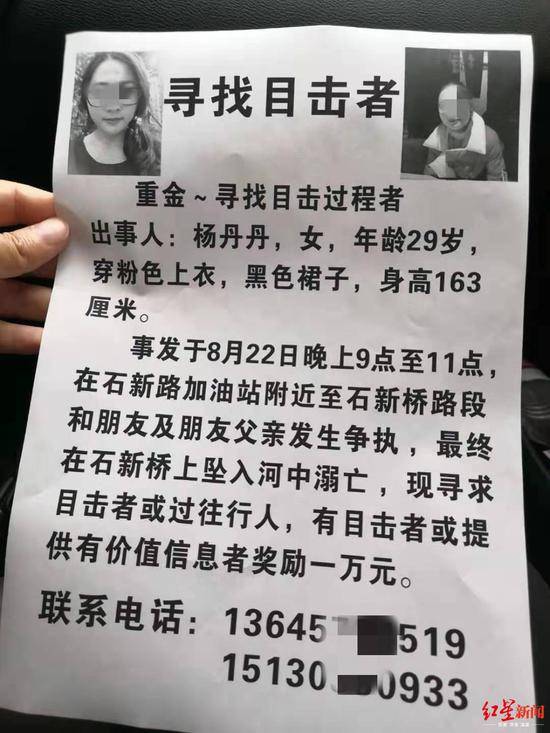 寻找目击者
重金~寻找目击过程者
出事人：杨丹丹，女，年龄29岁，
穿粉色上衣，黑色裙子，身高163
厘米。
事发于8月22日晚上9点至11点，
在石新路加油站附近至石新桥路段
和朋友及朋友父亲发生争执，最终
在石新桥上坠入河中溺亡，现寻求
目击者或过往行人，有目击者或提
供有价值信息者奖励一万元。
联系电话：13645 519
15130 0933
红星新闻